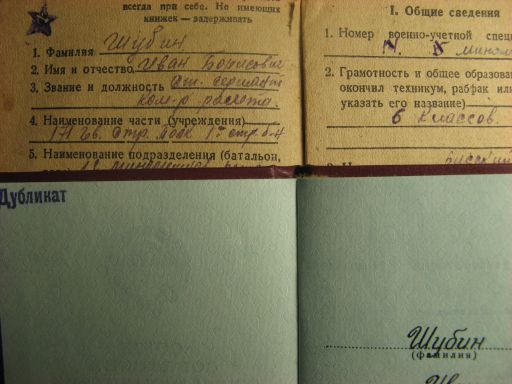 всегда при себе. Не имеющих
книжек — задерживать
1. Фамилия Шубин
2. Имя и отчество Иван Борисович
3. Звание и должность Ст. сержант
ком-р расчета.
4. Наименование части (учреждения)
171 Гв. стр. полк 1й стр. б-н
5. Наименование подразделения (батальон,
I. Общие сведения
1. Номер военно-учетной
2. Грамотность и общее
окончил техникум, рабфак
указать его название)
6 классов.
Дубликат
Шубин
(фамилия)